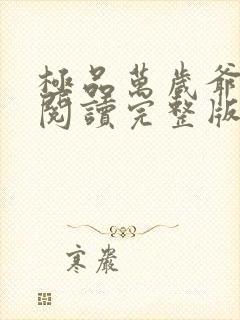 極品萬歲爺
閱讀完整版
寒嚴